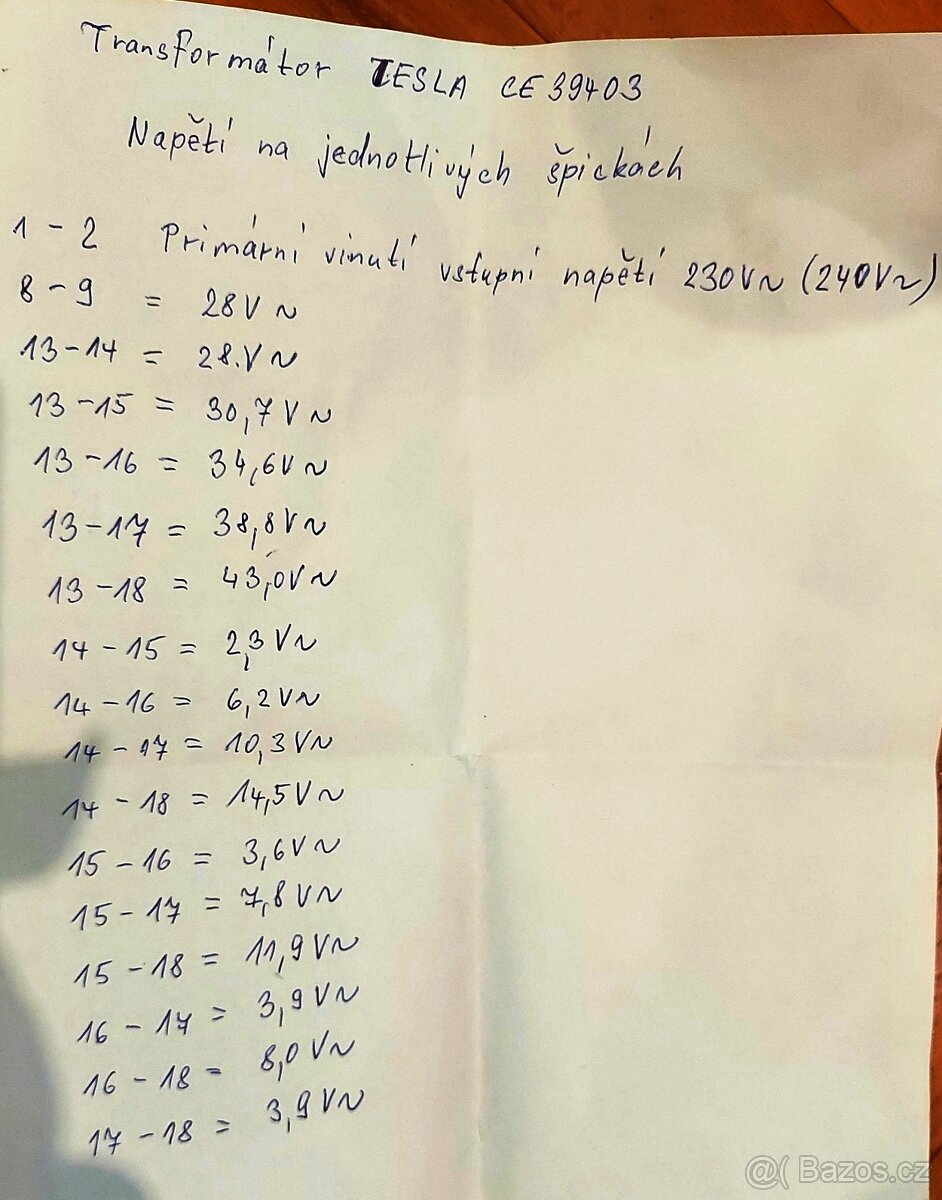 Transformátor TESLA CE39403
Napětí na jednotlivých špickách
1 - 2 Primární vinutí vstupní napětí 230V~ (240V~)
8 - 9 = 28V~
13-14 = 28.V~
13-15 = 30,7V~
13-16 = 34,6V~
13-17 = 38,8V~
13-18 = 43,0V~
14-15 = 2,3V~
14-16 = 6,2V~
14-17 = 10,3V~
14-18 = 14,5V~
15-16 = 3,6V~
15-17 = 7,8V~
15-18 = 11,9V~
16-17 = 3,9V~
16-18 = 8,0V~
17-18 = 3,9V~
@( Bazos.cz